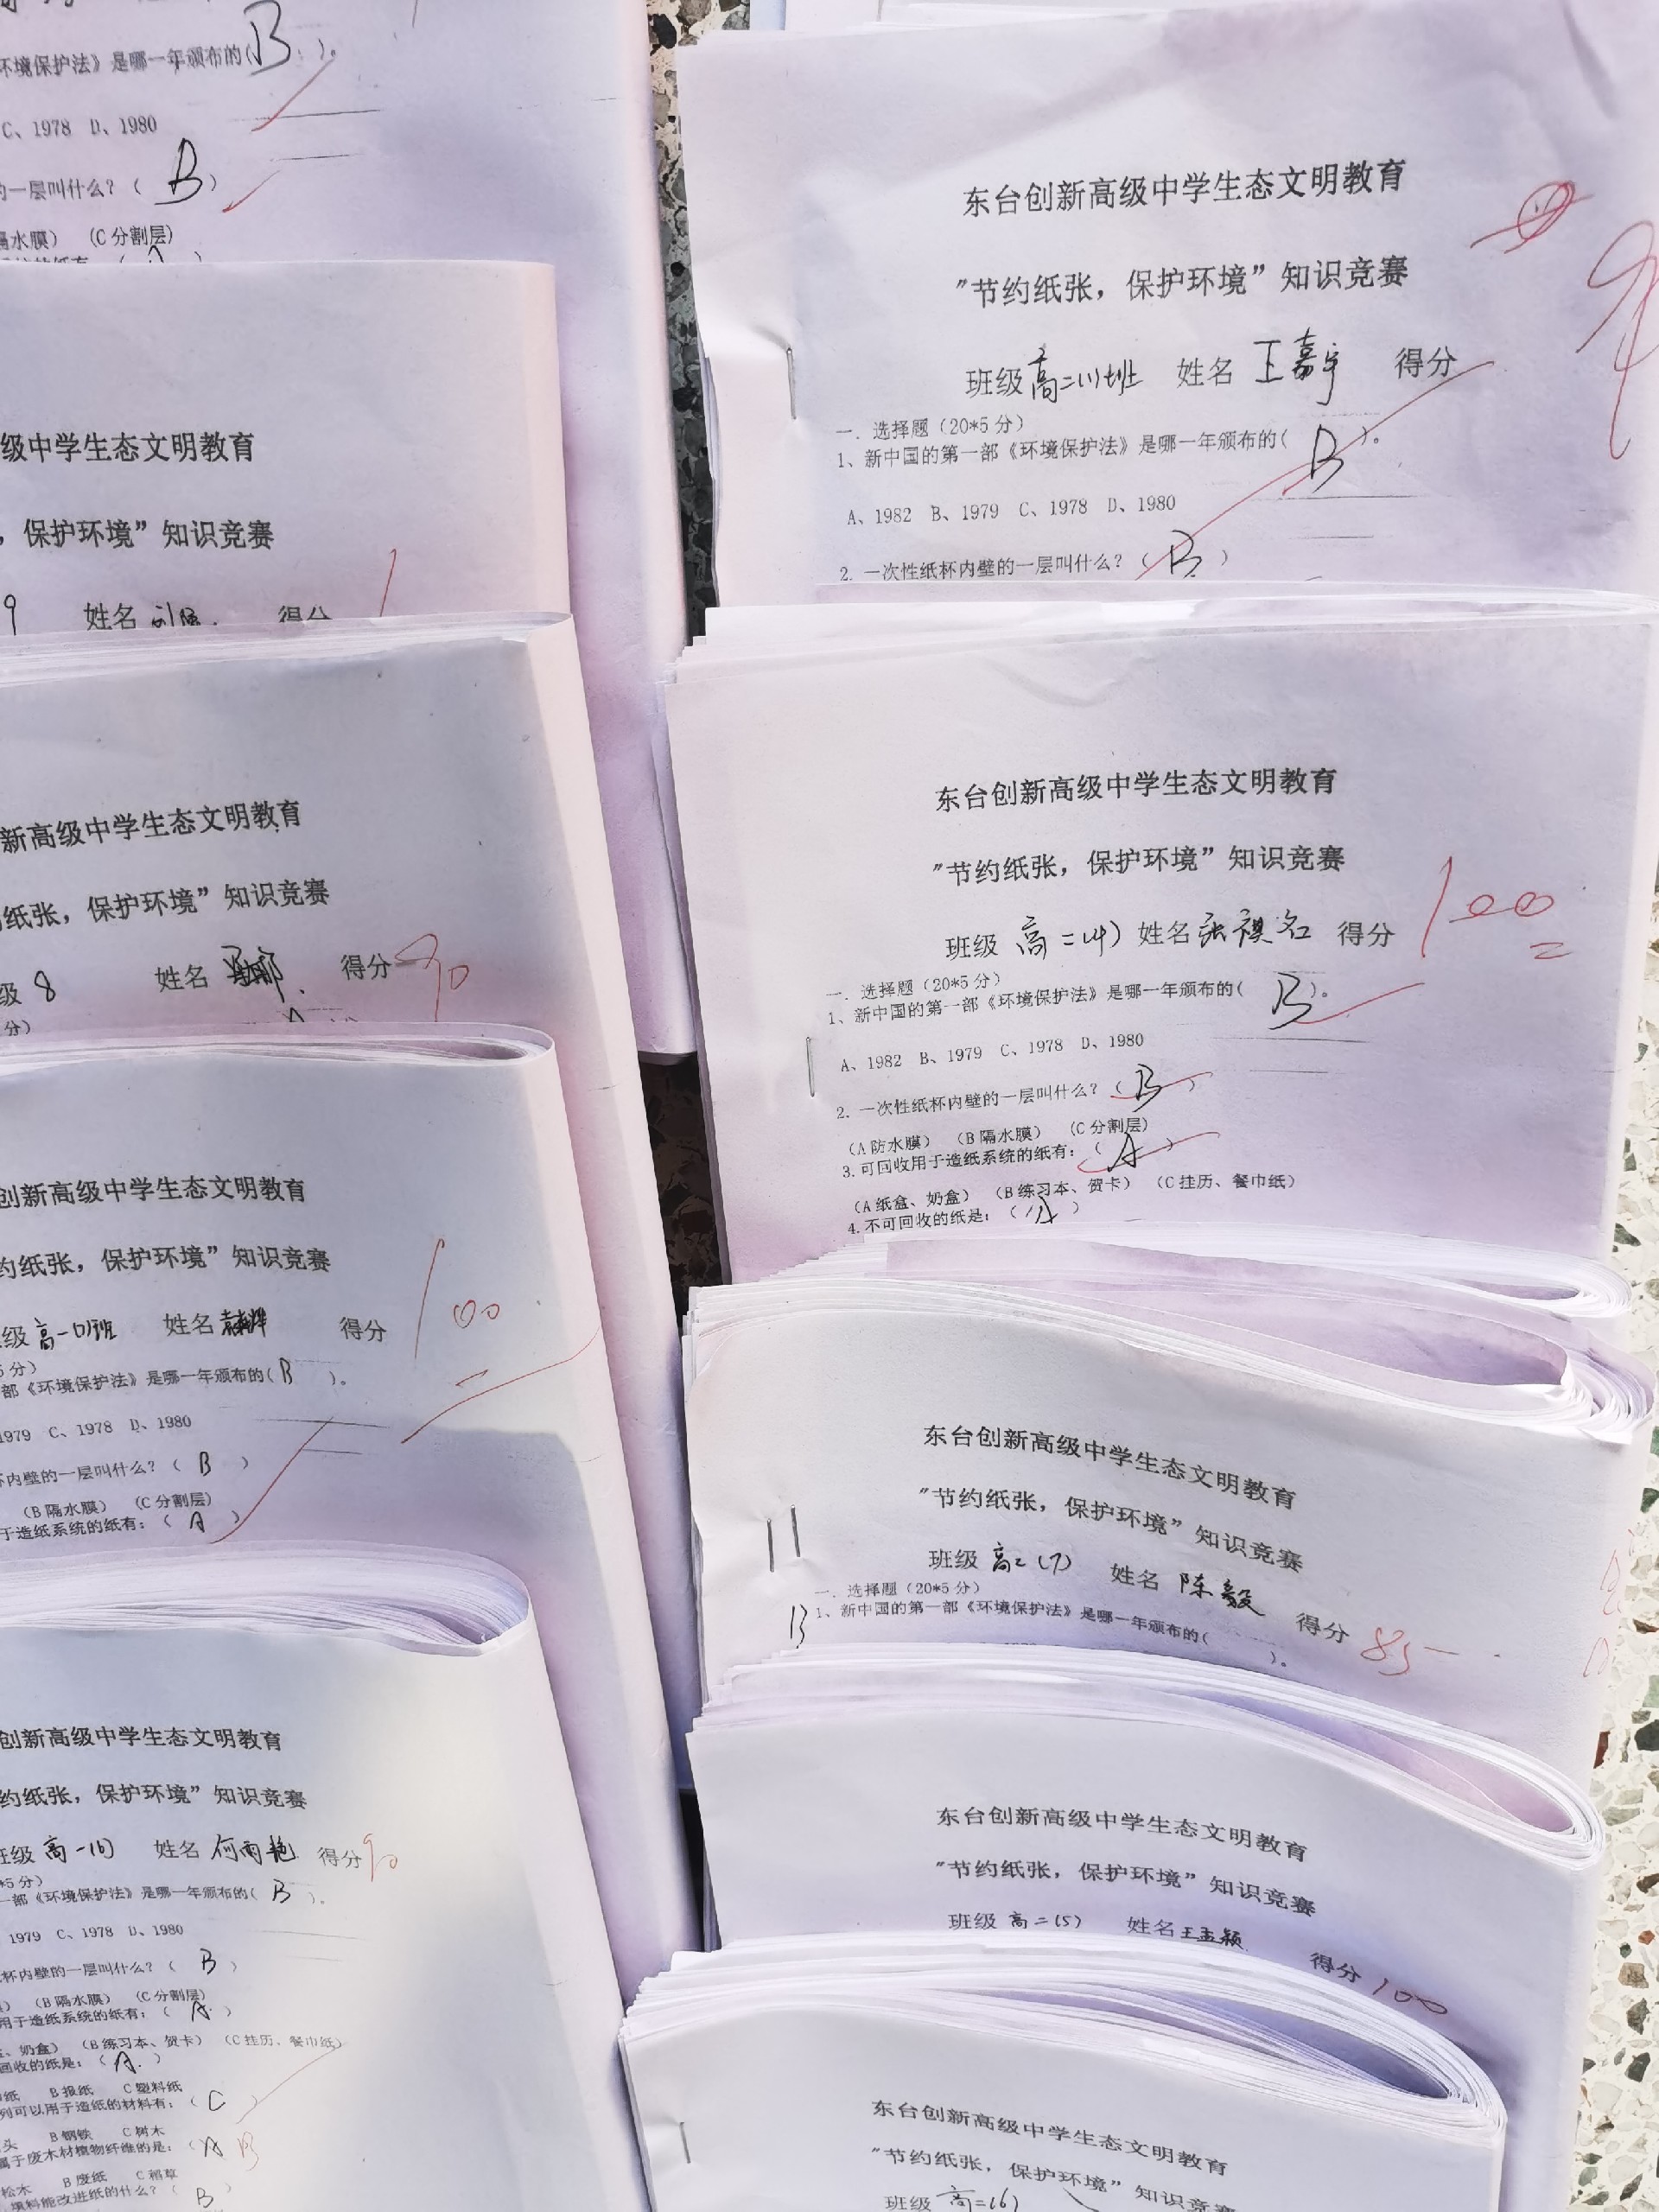 环境保护法》是哪一年颁布的(B)。
C、1978 D、1980
的一层叫什么？（B）
隔水膜） （C 分割层）
级中学生态文明教育
，保护环境”知识竞赛
9 姓名 得分
新高级中学生态文明教育
纸张，保护环境”知识竞赛
级 8 姓名 得分 90
分）
创新高级中学生态文明教育
约纸张，保护环境”知识竞赛
级 高一(1)班 姓名 得分 100
5 分）
部《环境保护法》是哪一年颁布的(B)。
1979 C、1978 D、1980
杯内壁的一层叫什么？（B）
（B 隔水膜） （C 分割层）
于造纸系统的纸有：（A）
创新高级中学生态文明教育
约纸张，保护环境”知识竞赛
班级 高一(6) 姓名 何雨艳 得分 90
*5 分）
一部《环境保护法》是哪一年颁布的(B)。
1979 C、1978 D、1980
杯内壁的一层叫什么？（B）
（B 隔水膜） （C 分割层）
用于造纸系统的纸有：（A）
、奶盒） （B 练习本、贺卡） （C 挂历、餐巾纸）
回收的纸是：（A）
纸 B 报纸 C 塑料纸
列可以用于造纸的材料有：（C）
头 B 钢铁 C 树木
属于废木材植物纤维的是：（A B
松木 B 废纸 C 稻草
填料能改进纸的什么？（B）
东台创新高级中学生态文明教育
"节约纸张，保护环境”知识竞赛
班级 高二(1)班 姓名 王嘉宇 得分
一. 选择题（20*5 分）
1、新中国的第一部《环境保护法》是哪一年颁布的(B)。
A、1982 B、1979 C、1978 D、1980
2. 一次性纸杯内壁的一层叫什么？（B）
东台创新高级中学生态文明教育
"节约纸张，保护环境”知识竞赛
班级 高二(4) 姓名 张祺名 得分 100
一. 选择题（20*5 分）
1、新中国的第一部《环境保护法》是哪一年颁布的(B)。
A、1982 B、1979 C、1978 D、1980
2. 一次性纸杯内壁的一层叫什么？（B）
（A 防水膜） （B 隔水膜） （C 分割层）
3. 可回收用于造纸系统的纸有：（A）
（A 纸盒、奶盒） （B 练习本、贺卡） （C 挂历、餐巾纸）
4. 不可回收的纸是：（A）
东台创新高级中学生态文明教育
"节约纸张，保护环境”知识竞赛
班级 高二(7) 姓名 陈毅 得分 85
一. 选择题（20*5 分）
B 1、新中国的第一部《环境保护法》是哪一年颁布的( )。
东台创新高级中学生态文明教育
"节约纸张，保护环境”知识竞赛
班级 高二(5) 姓名 王孟颖 得分 100
东台创新高级中学生态文明教育
"节约纸张，保护环境”知识竞赛
班级 高二(6)